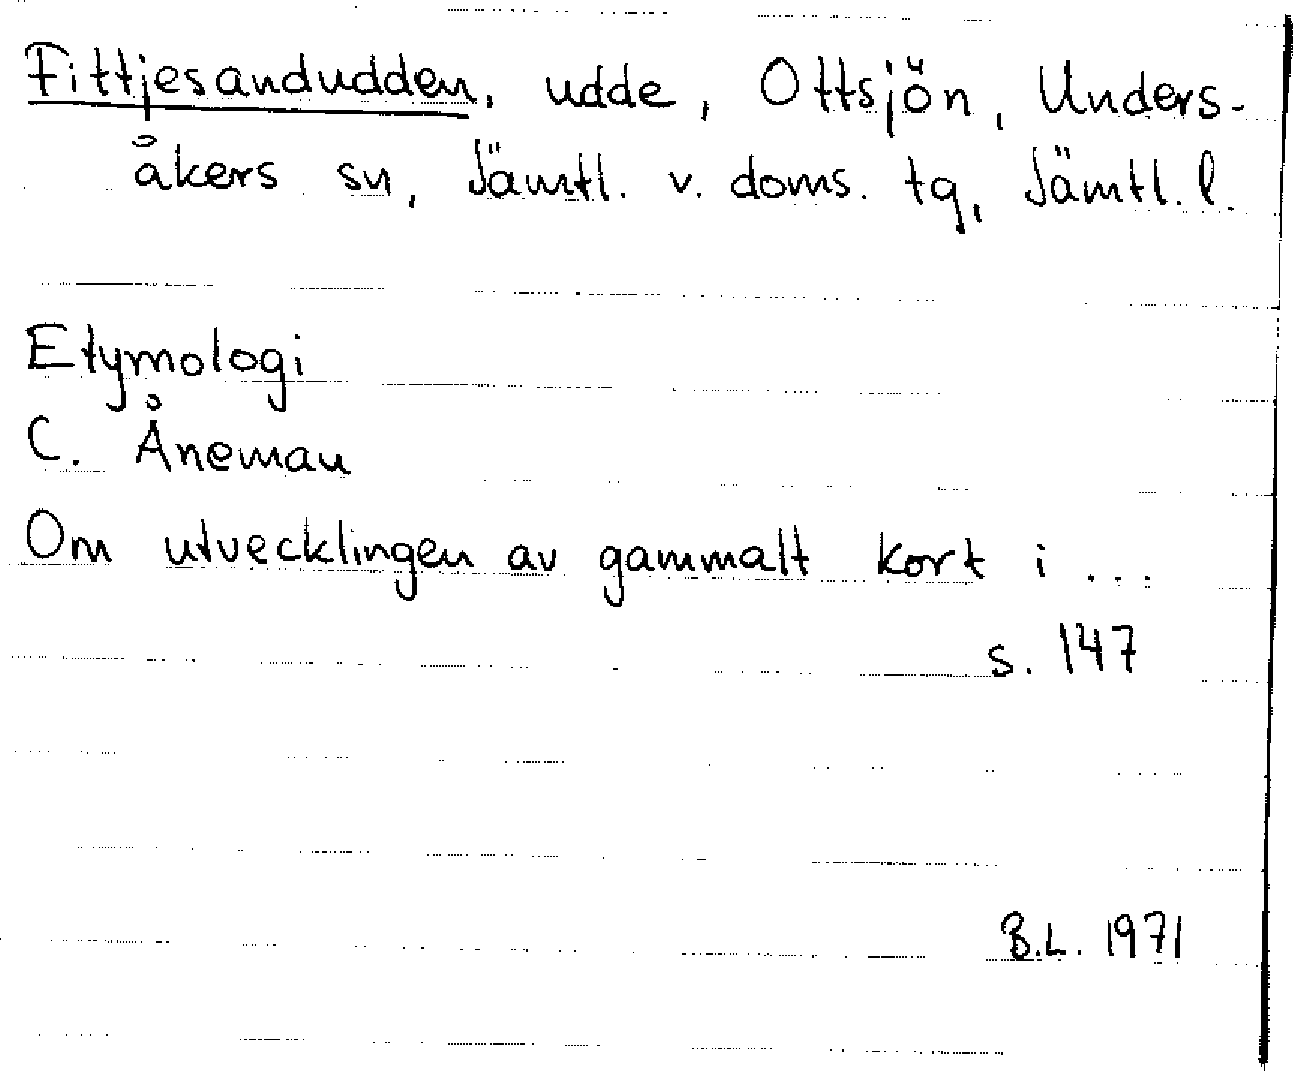 Fittjesandudden, udde, Ottsjön, Unders-
åkers sn, Jämtl. v. doms. tg, Jämtl. l.
Etymologi
C. Åneman
Om utvecklingen av gammalt kort i ...
s. 147
B.L. 1971